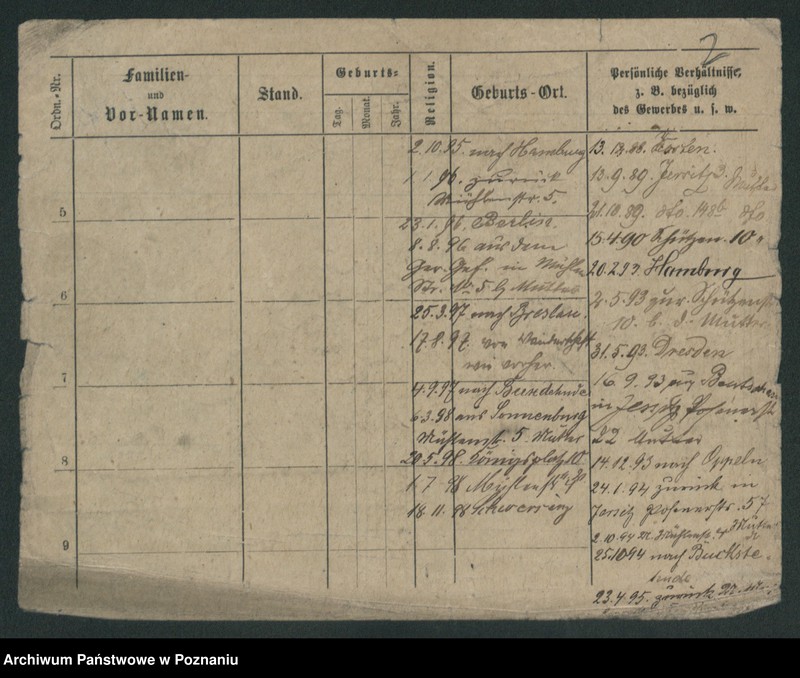 2
Ordn.-Nr.
Familien-
und
Vor-Namen.
Stand.
Geburts-
Tag.
Monat.
Jahr.
Religion.
Geburts-Ort.
Persönliche Verhältnisse,
z. B. bezüglich
des Gewerbes u. s. w.
5
6
7
8
9
2.10.95. nach Hamburg
1.1.96. zurück
Mühlenstr. 5.
23.1.96. Berlin.
8.8.96 aus dem
Ger. Gef. in Mühlen
Str. No 5 b Mutter
25.3.97 nach Breslau.
17.8.97. von Wanderschaft
wie vorher.
4.9.97 nach
6.3.98 aus Sonnenburg
Mühlenst. 5. Mutter
20.5.98. Königsplatz 10
1.7.98 Mühlenstr.
18.11.98 Schwersenz
13.12.88.
13.9.89. Jersitz
21.10.89. dto. 148b dto
15.4.90 Schützen. 10
20.2.93. Hamburg
2.5.93 zur. Schützenstr
10. b. d. Mutter
31.5.93. Dresden
16.9.93 aus
in Jersitz Posenerstr
22 Mutter
14.12.93 nach Oppeln
24.1.94 zurück in
Jersitz Posenerstr. 57
2.10.94 Mühlenstr. 4 Mutter
25.10.94 nach Buckste-
hude
23.4.95. zurück
Archiwum Państwowe w Poznaniu